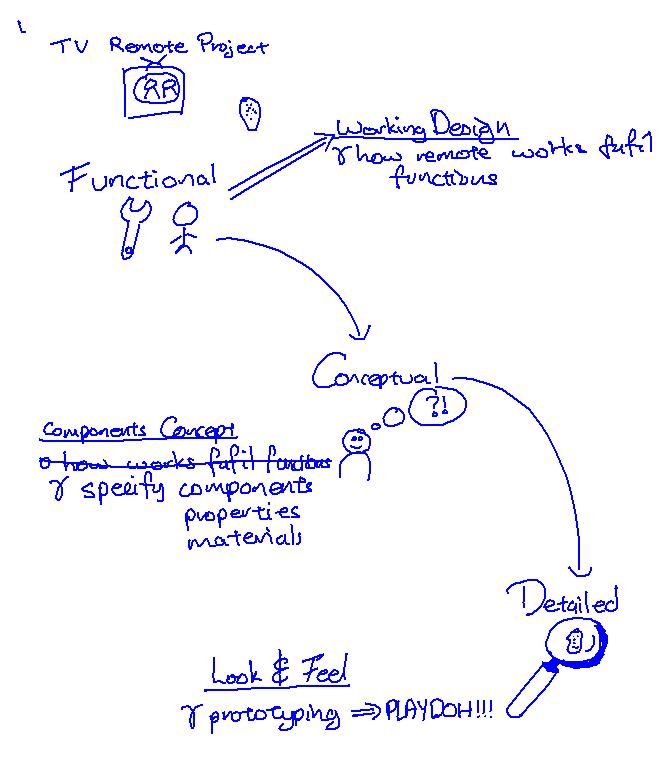 TV Remote Project
RR
Working Design
how remote works fufil
functions
Functional
Conceptual
?!
Components Concept
how works fufil functions
specify components
properties
materials
Detailed
Look & Feel
prototyping ⇒ PLAYDOH!!!